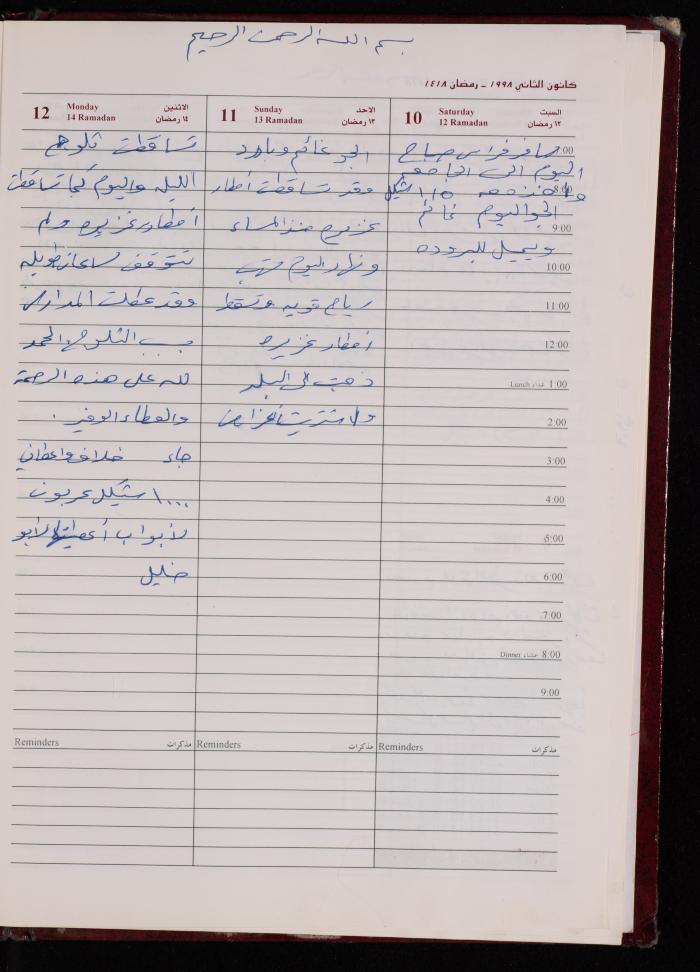 بسم الله الرحمن الرحيم
كانون الثاني ١٩٩٨ ـ رمضان ١٤١٨
10 Saturday السبت
12 Ramadan ١٢ رمضان
سافر فراس صباح
اليوم الى الجامعه
واخذ معه ١١٥ شيكل
الجو اليوم غائم
ويميل للبروده
7:00
8:00
9:00
10:00
11:00
12:00
Lunch غداء 1:00
2:00
3:00
4:00
5:00
6:00
7:00
Dinner عشاء 8:00
9:00
Reminders مذكرات
11 Sunday الاحد
13 Ramadan ١٣ رمضان
الجو غائم وبارد
وقد تساقطت أمطار
غزيره منذ المساء
ونهار اليوم تهب
رياح قويه وتسقط
أمطار غزيره
ذهبت الى البلد
واشتريت أغراض
Reminders مذكرات
12 Monday الاثنين
14 Ramadan ١٤ رمضان
تساقطت ثلوج
الليله واليوم كما تساقطت
أمطار غزيره ولم
تتوقف ساعات طويله
وقد عطلت المدارس
بسبب الثلوج الحمد
لله على هذه الرحمة
والعطاء الوفير.
جاء خلاف واعطاني
١٠٠٠ شيكل عربون
لأبواب أعطيتها لأبو
خليل
Reminders مذكرات